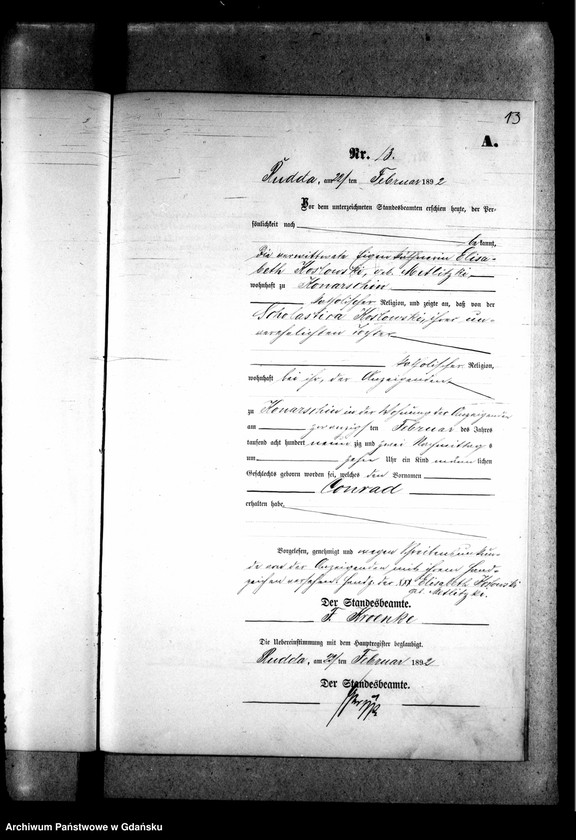 13
A.
Nr. 13.
Rudda, am 22/ten Februar 1892
Vor dem unterzeichneten Standesbeamten erschien heute, der Per-
sönlichkeit nach
bekannt,
die verwittwete Eigenkäthnerin Elisa-
beth Koslowski, geb. Metlitzki,
wohnhaft zu Konarschin
katholischer Religion, und zeigte an, daß von der
Scholastica Koslowski, ihrer un-
verehelichten Tochter
katholischer Religion,
wohnhaft bei ihr, der Anzeigenden
zu Konarschin in der Wohnung der Anzeigenden
am zwanzigsten Februar des Jahres
tausend acht hundert neunzig und zwei Nachmittags
um zehn Uhr ein Kind männlichen
Geschlechts geboren worden sei, welches den Vornamen
Conrad
erhalten habe.
Vorgelesen, genehmigt und wegen Schreibensunkun-
de von der Anzeigenden mit ihrem Hand-
zeichen versehen. Handz. der XXX Elisabeth Koslowski
geb. Metlitzki.
Der Standesbeamte.
F. Kroenke
Die Uebereinstimmung mit dem Hauptregister beglaubigt.
Rudda, am 22/ten Februar 1892
Der Standesbeamte.
Archiwum Państwowe w Gdańsku